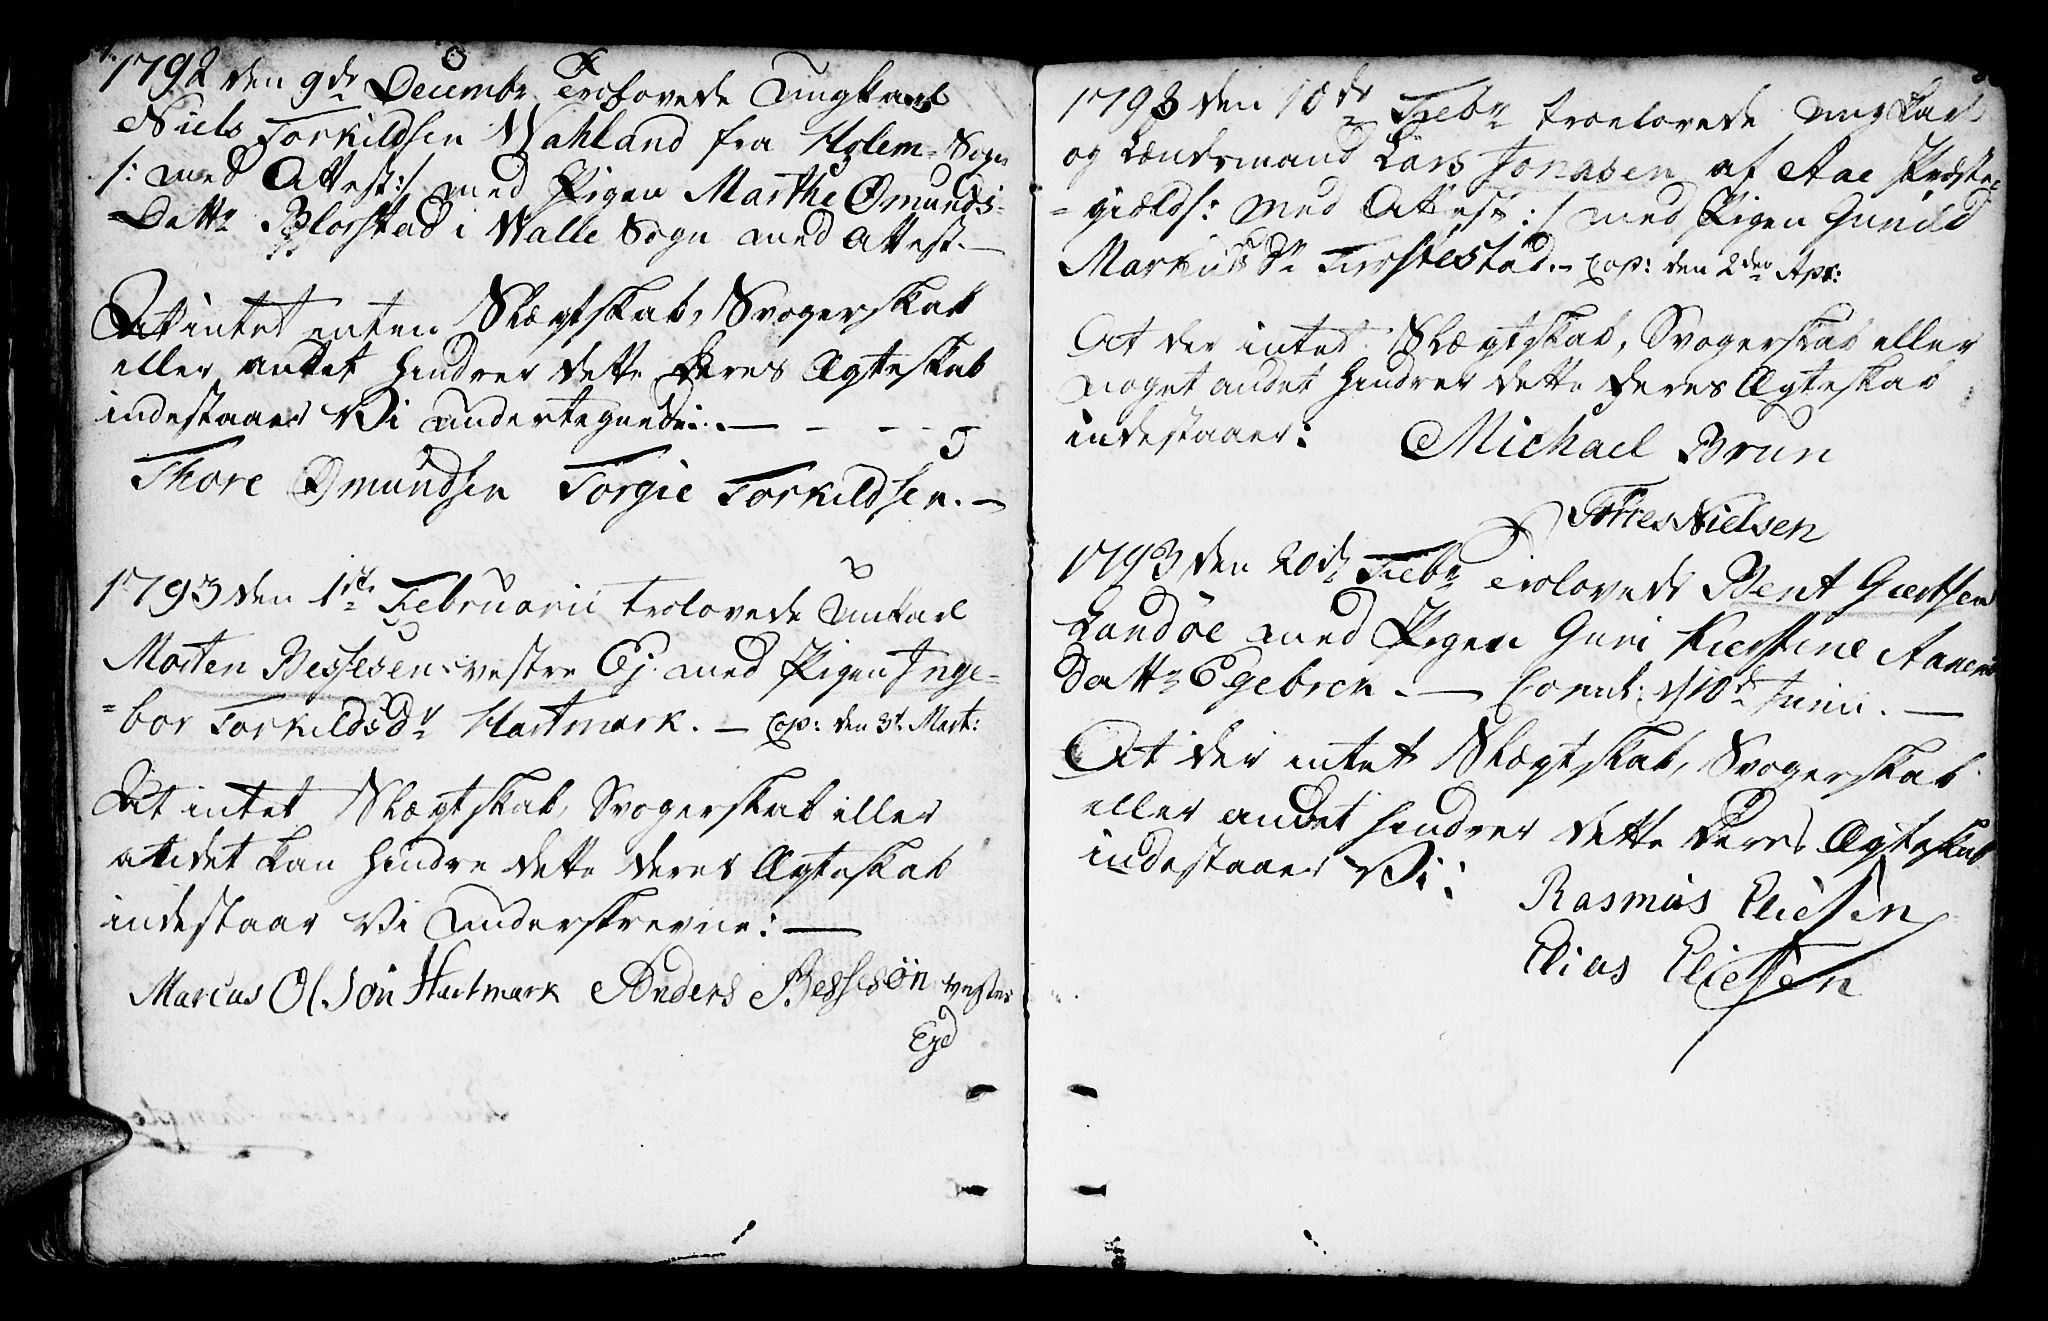 1792 den 9de Decembr Trolovede Ungkarl
Niels Torkildsen Wahland fra Holem-Sogn
/: med Attest:/ med Pigen Marthe Omunds-
-Dattr Blorstad i Walle Sogn med Attest.
At intet enten Slægtskab, Svogerskab
eller andet hindrer dette deres Ægteskab
indestaaer Vi Undertegnede:.
Thore Omundsen Torgie Torkildsen.
1793 den 1ste Februarii trolovede Unkarl
Morten Bessesen vestre Ej. med Pigen Inge-
-bor Torkildsdr Hartmark. - Cop: den 3d. Mart:
At intet Slægtskab, Svogerskab eller
andet kan hindre dette deres Ægteskab
indestaar Vi Underskrevne:
Marcus Olsøn Hartmark Anders Bessesøn vester
Eyd
1793 den 10de Febr troelovede ungkarl
og Lændsmand Lars Jonasen af Aae Præste-
-giælds: med Attest:/ med Pigen Gunild
Markus Dr Tierstestad. - Cop: den 2den Apr:
At der intet Slægtskab, Svogerskab eller
noget andet hindrer dette deres Ægteskab
indestaaer: Michael Brun
Torres Nielsen
1793 den 20de Febr Trolovede Bent Giertsen
Landøe med Pigen Guri Kierstine Aanens
Dattr Egebren. Copul: d 10de Junii.
At der intet Slægtskab, Svogerskab
eller andet hindrer dette deres Ægteskab
indestaaer Vi:
Rasmus Eliesen
Elias Eliesen